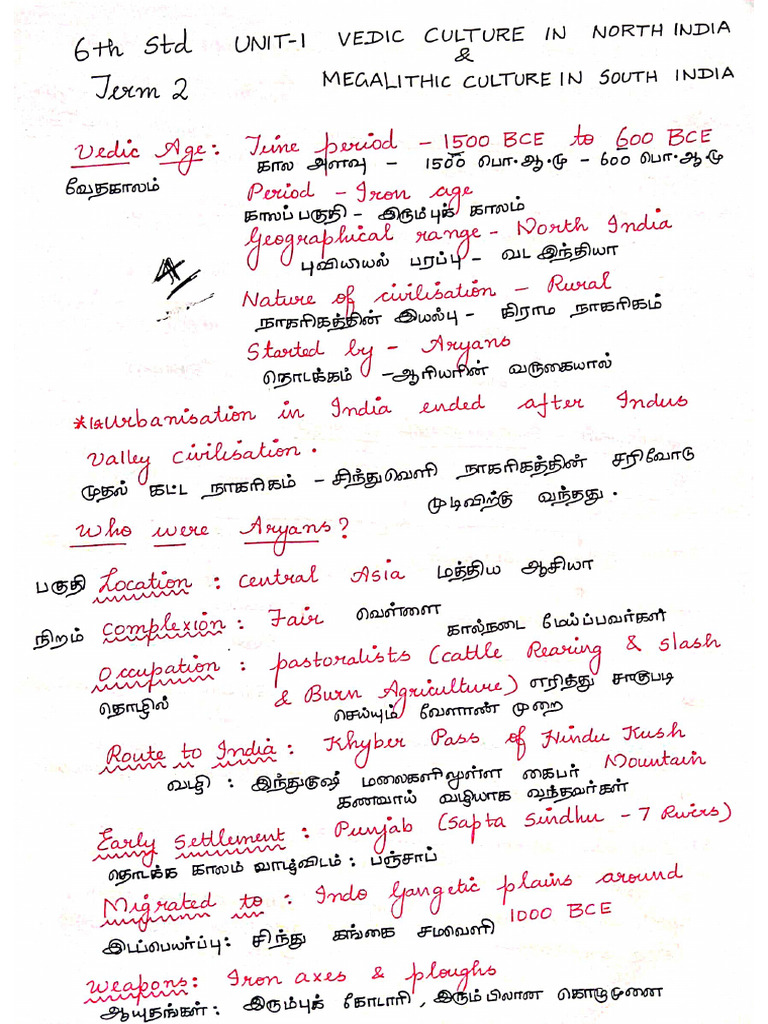 6th Std UNIT-1 VEDIC CULTURE IN NORTH INDIA
&
Term 2 MEGALITHIC CULTURE IN SOUTH INDIA
Vedic Age: Time period - 1500 BCE to 600 BCE
வேதகாலம் கால அளவு - 1500 பொ.ஆ.மு - 600 பொ.ஆ.மு
Period - Iron age
காலப் பகுதி - இரும்புக் காலம்
Geographical range - North India
புவியியல் பரப்பு - வட இந்தியா
Nature of civilisation - Rural
நாகரிகத்தின் இயல்பு - கிராம நாகரிகம்
Started by - Aryans
தொடக்கம் - ஆரியரின் வருகையால்
* Ist Urbanisation in India ended after Indus
Valley civilisation.
முதல் கட்ட நாகரிகம் - சிந்துவெளி நாகரிகத்தின் சரிவோடு
முடிவிற்கு வந்தது.
Who were Aryans?
பகுதி Location : Central Asia மத்திய ஆசியா
நிறம் Complexion : Fair வெள்ளை
கால்நடை மேய்ப்பவர்கள்
Occupation : pastoralists (cattle Rearing & slash
தொழில் & Burn Agriculture) எரித்து சாகுபடி
செய்யும் வேளாண் முறை
Route to India : Khyber Pass of Hindu Kush
Mountain
வழி : இந்துகுஷ் மலைகளிலுள்ள கைபர்
கணவாய் வழியாக வந்தவர்கள்
Early Settlement : Punjab (Sapta Sindhu - 7 Rivers)
தொடக்க காலம் வாழ்விடம் : பஞ்சாப்
Migrated to : Indo Gangetic plains around
1000 BCE
இடப்பெயர்ப்பு : சிந்து கங்கை சமவெளி
Weapons : Iron axes & ploughs
ஆயுதங்கள் : இரும்புக் கோடாரி, இரும்பிலான கொழுமுனை